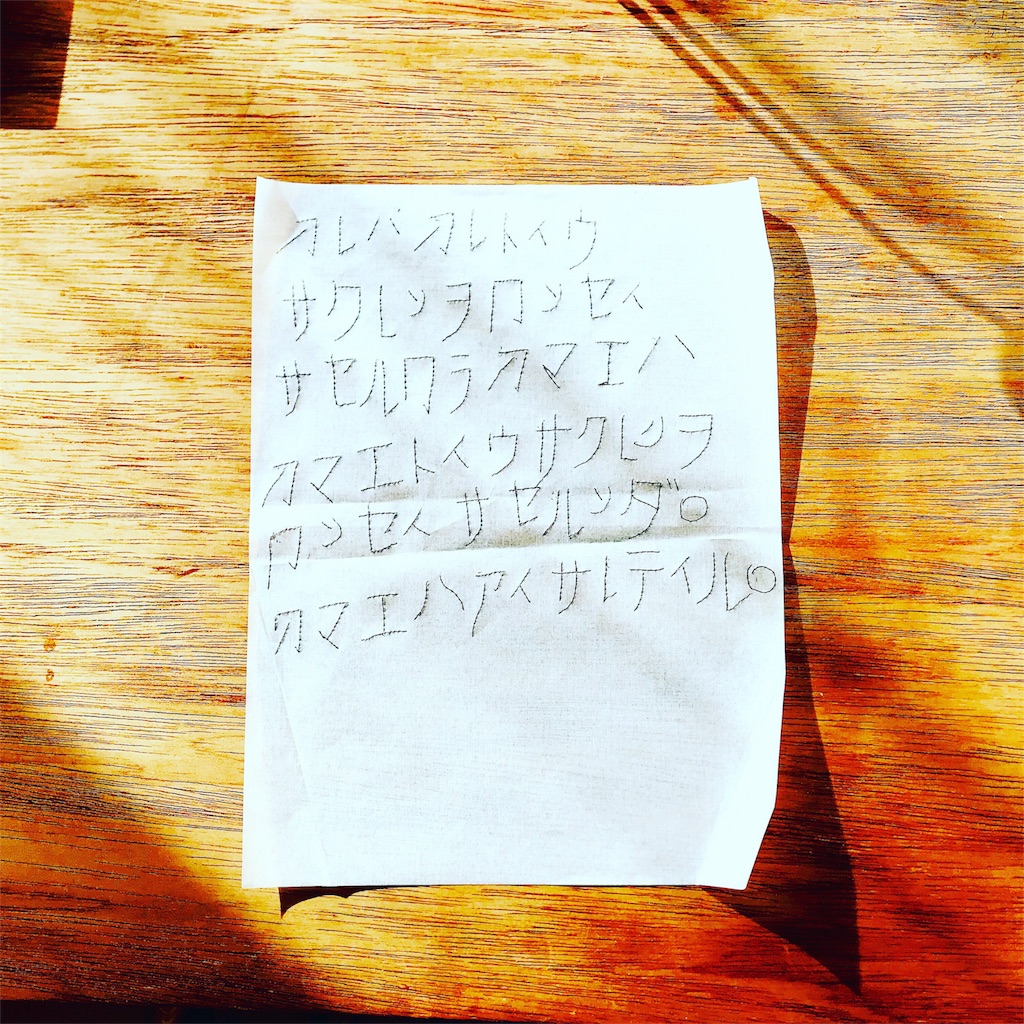 オレハオレトイウ
サクヒンヲカンセイ
サセルカラオマエハ
オマエトイウサクヒンヲ
カンセイサセルンダ。
オマエハアイサレテイル。